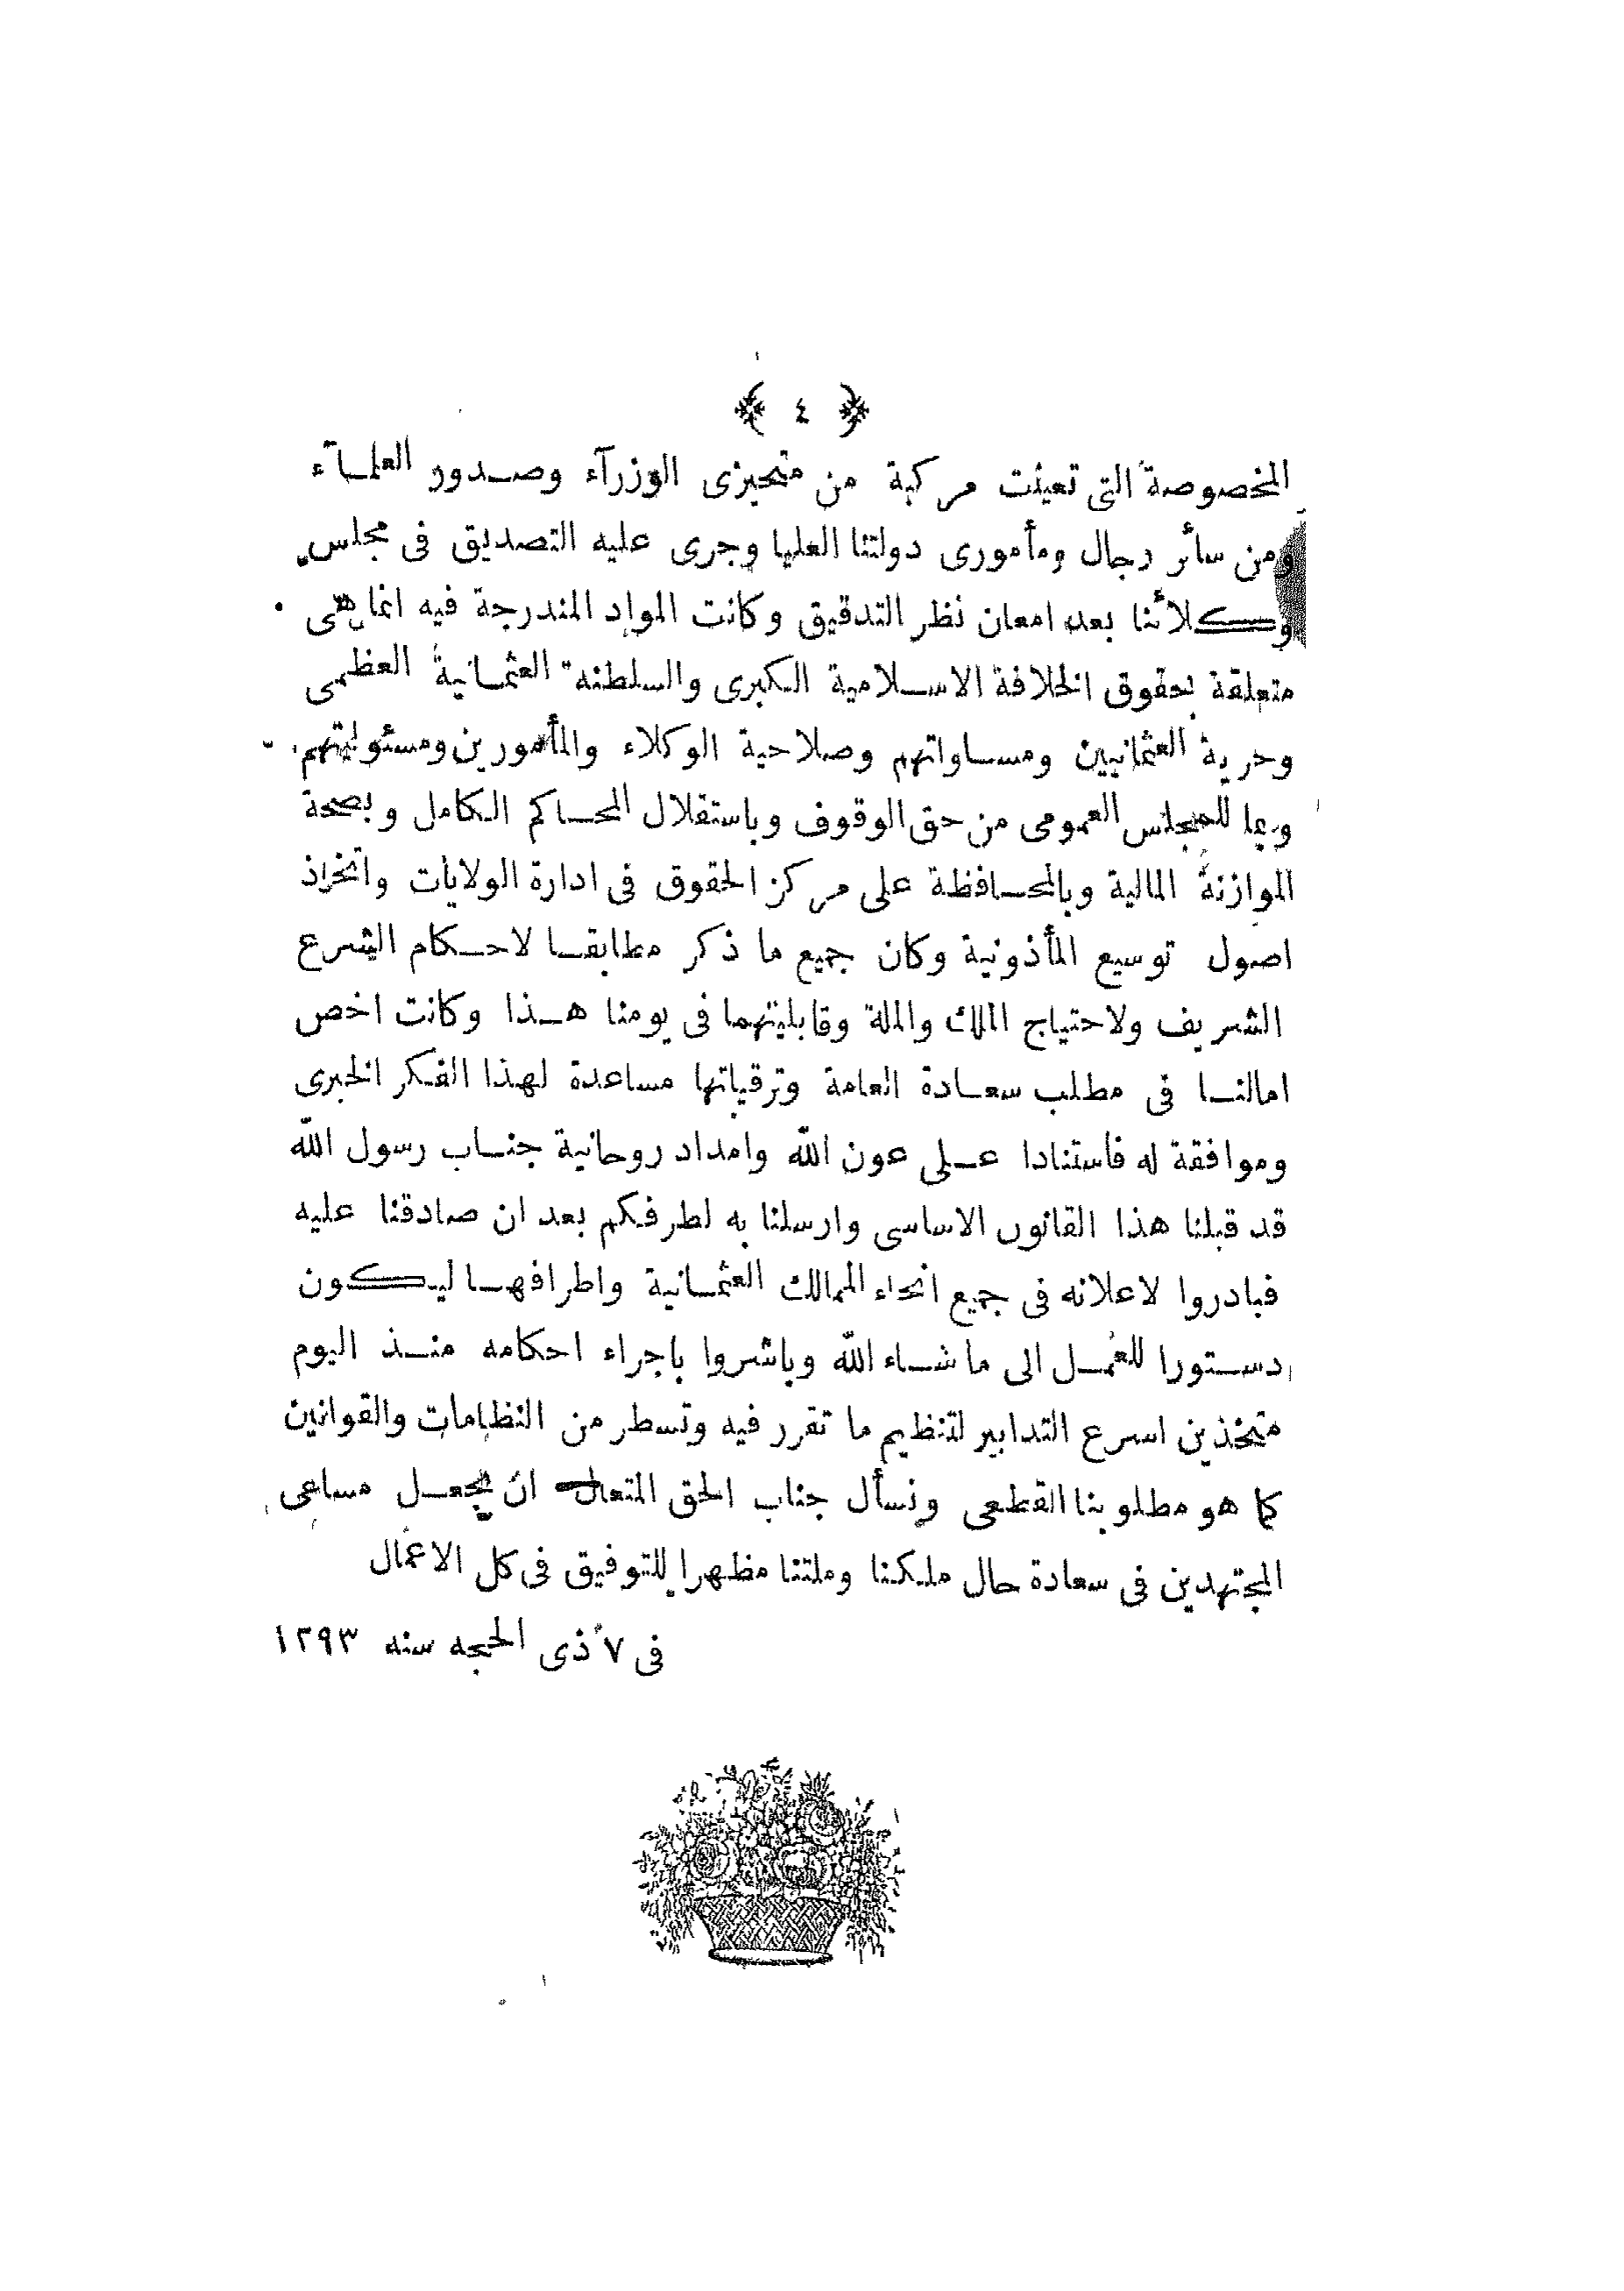 ﴿ ٤ ﴾
المخصوصة التى تعينت مركبة من متحيزى الوزرآء وصدور العلمآء
ومن سائر رجال ومأمورى دولتنا العليا وجرى عليه التصديق فى مجلس
وكلائنا بعد امعان نظر التدقيق وكانت المواد المندرجة فيه انما هى
متعلقة بحقوق الخلافة الاسلامية الكبرى والسلطنة العثمانية العظمى
وحرية العثمانيين ومساواتهم وصلاحية الوكلاء والمأمورين ومسئوليتهم
وبما للمجلس العمومى من حق الوقوف وباستقلال المحاكم الكامل وبصحة
الموازنة المالية وبالمحافظة على مركز الحقوق فى ادارة الولايات واتخاذ
اصول توسيع المأذونية وكان جميع ما ذكر مطابقا لاحكام الشرع
الشريف ولاحتياج الملك والملة وقابليتهما فى يومنا هذا وكانت اخص
امالنا فى مطلب سعادة العامة وترقياتها مساعدة لهذا الفكر الخبرى
وموافقة له فاستنادا على عون الله وامداد روحانية جناب رسول الله
قد قبلنا هذا القانون الاساسى وارسلنا به لطرفكم بعد ان صادقنا عليه
فبادروا لاعلانه فى جميع انحاء الممالك العثمانية واطرافها ليكون
دستورا للعمل الى ما شاء الله وباشروا باجراء احكامه منذ اليوم
متخذين اسرع التدابير لتنظيم ما تقرر فيه وتسطر من النظامات والقوانين
كما هو مطلوبنا القطعى ونسأل جناب الحق المتعال ان يجعل مساعى
المجتهدين فى سعادة حال ملكنا وملتنا مظهرا للتوفيق فى كل الاعمال
فى ٧ ذى الحجه سنه ١٢٩٣